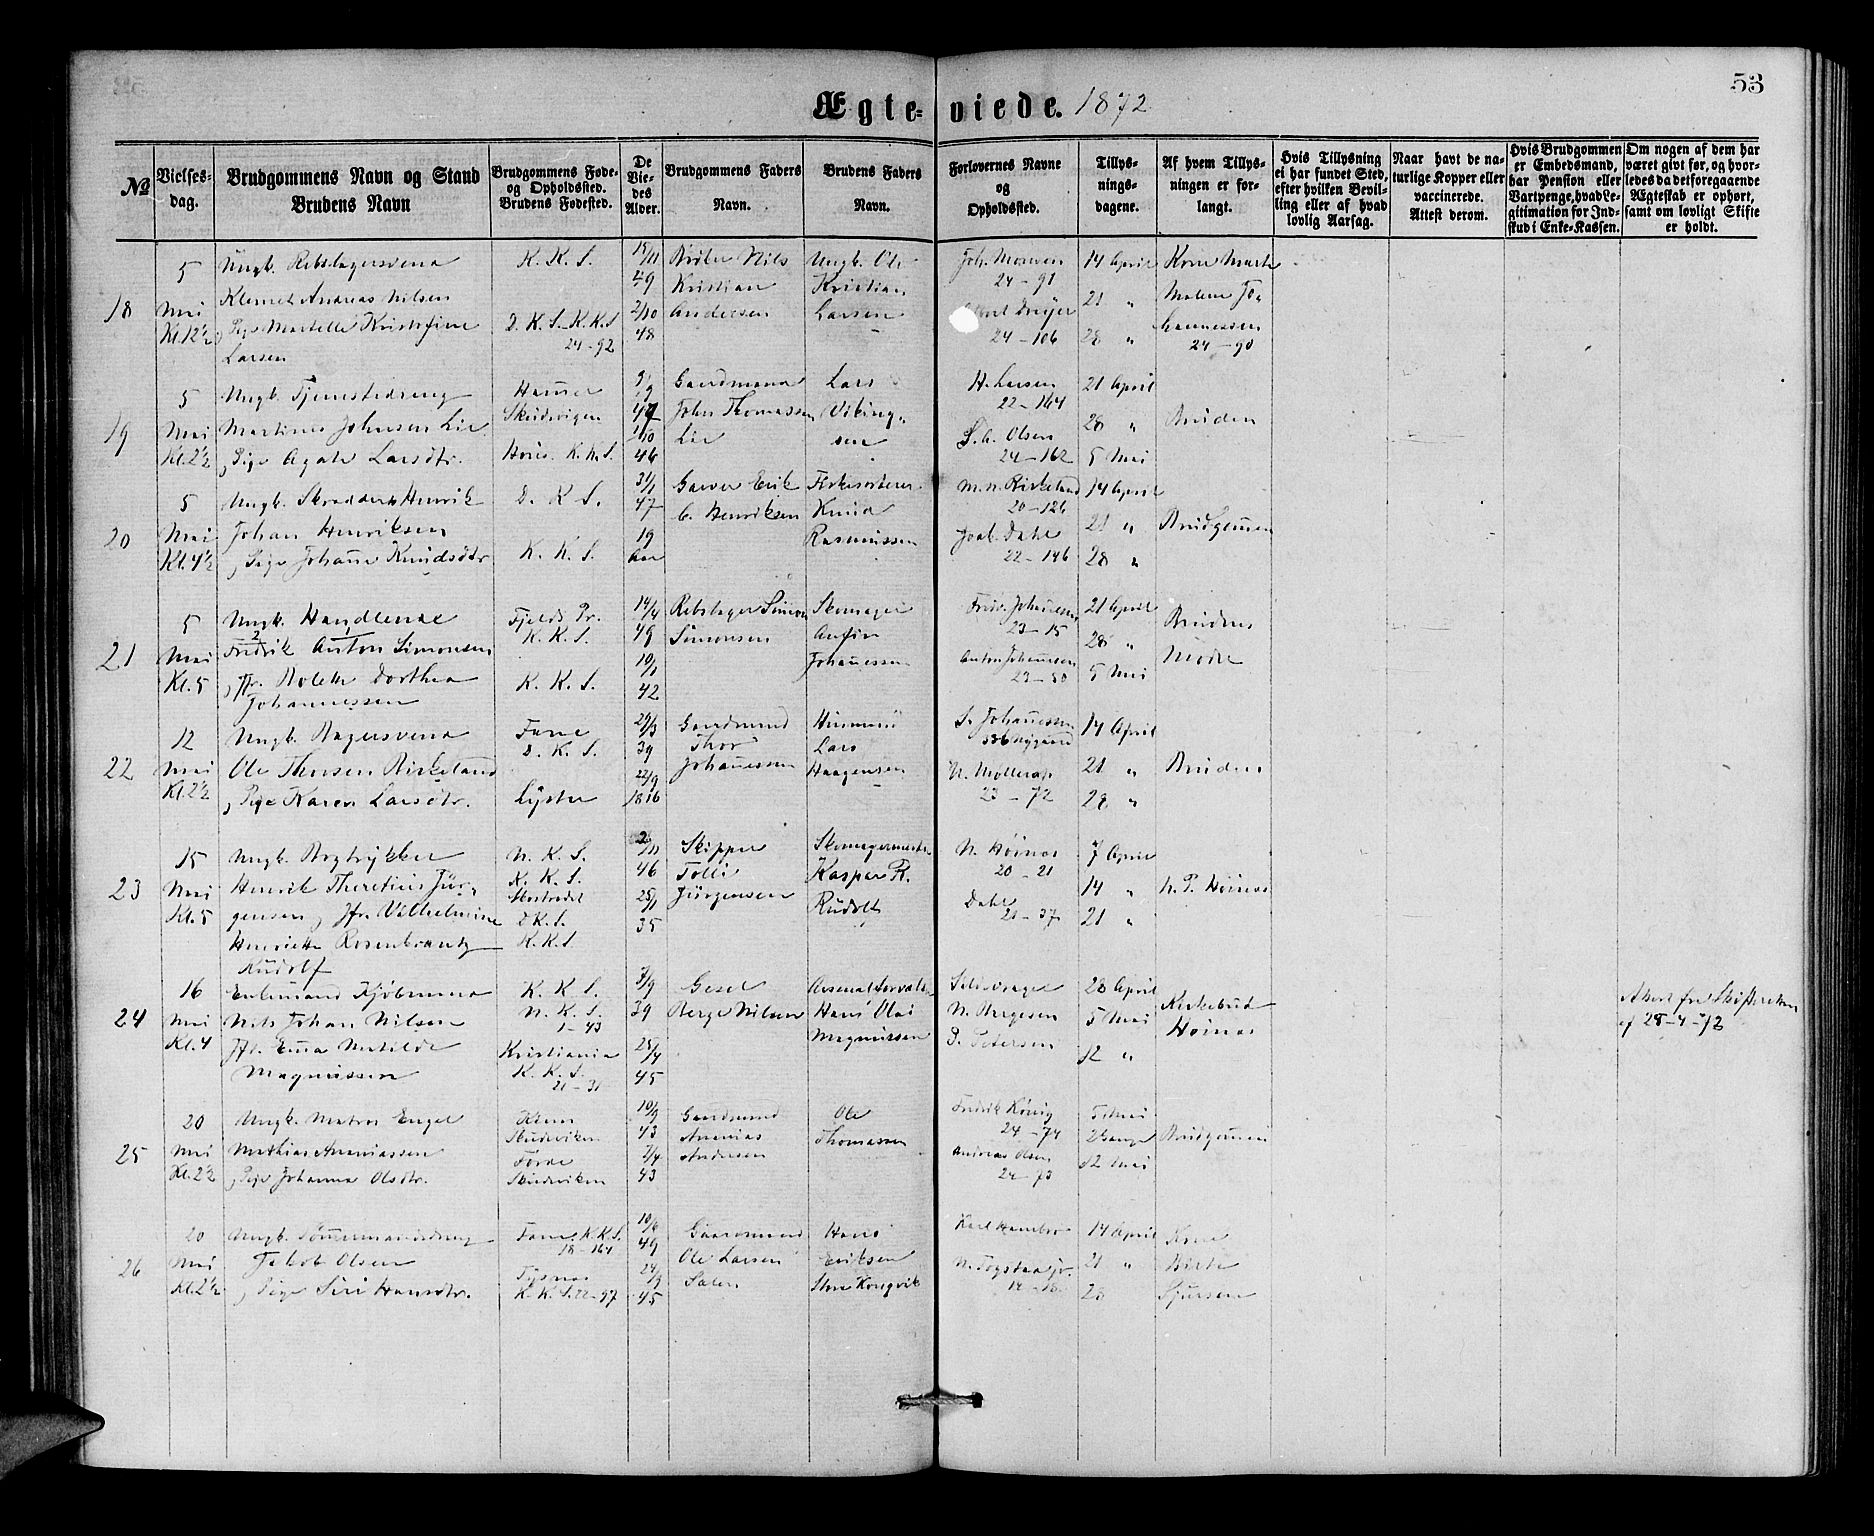 53
Ægte-viede. 1872.
No
Vielses-dag.
Brudgommens Navn og Stand
Brudens Navn
Brudgommens Føde- og Opholdssted.
Brudens Fødested.
De Vie-des Alder.
Brudgommens Faders Navn.
Brudens Faders Navn.
Forlovernes Navne og Opholdssted.
Tillys-nings-dagene.
Af hvem Tillys-ningen er for-langt.
Hvis Tillysning ei har fundet Sted, efter hvilken Bevil-ling eller af hvad lovlig Aarsag.
Naar havt de na-turlige Kopper eller vaccinerede. Attest derom.
Hvis Brudgommen er Embedsmand, har Pension eller Vartpenge, hvad Le-gitimation for Ind-skud i Enke-Kassen.
Om nogen af dem har været givt før, og hvor-ledes da det foregaaende Ægteskab er ophørt, samt om lovligt Skifte er holdt.
18
5 Mai Kl. 12½
Ungk. Rebslagersvend
Andreas Nilsen
Pige
Larsen
K. K. S.
D. K. S. K. K. S.
24-92
49
2/10
48
Nils
Kristian
Andersen
Ungk. Ole
Kristian
Larsen
24-91
24-106
14 April
21 "
28 "
24-90
19
5 Mai Kl. 2½
Ungk. Tjenestedreng
Martinus Johnsen Lie
, Pige Agate Larsdtr.
Skudevigen
K. K. S.
47
1/10
46
Gaardmand
John Thomassen
Lie
Lars
Viking-
sen
H. Larsen
22-164
S. A. Olsen
24-162
21 April
28 "
5 Mai
Bruden
20
5 Mai Kl. 4½
Ungk. Skrædder Henrik
Johan Henriksen
, Pige Johanne Knudsdtr.
D. K. S.
K. K. S.
31/1
47
19
Aar
Garver Erik
C. Henriksen
Knud
Rasmussen
M. N. Birkeland
20-126
Joak. Dahl
22-146
14 April
21 "
28 "
Brudgommen
21
5 Mai Kl. 5
Ungk.
Fredrik Anton Simonsen
, Jfr. Bolette Dorthea
Johannessen
Fjelds Pr.
K. K. S.
K. K. S.
14/4
49
10/1
42
Rebslager Simon
Simonsen
Skomager
Anfin
Johannessen
Johannessen
23-15
Anton Johannessen
23-50
21 April
28 "
5 Mai
Brudens
Moder
22
12 Mai Kl. 2½
Ungk. Bagersvend
Ole Thorsen Birkeland
, Pige Karen Larsdtr.
Fane
D. K. S.
Lyster
29/3
39
22/9
1816
Gaardmand
Thor
Johannessen
Huusmand
Lars
Haagensen
S. Johannessen
536 Nygaard
N. Møllerop
23-72
14 April
21 "
28 "
Bruden
23
15 Mai Kl. 5
Ungk. Bogtrykker
Henrik Theretius Jür-
gensen, Jfr. Vilhelmine
Henriette Rosenkrantz
Rudolf
N. K. S.
K. K. S.
D. K. S.
K. K. S.
2/11
46
25/1
35
Skipper
Tolli
Jürgensen
Skomagermester
Kaspar R.
Rudolf
N. Høinæs
20-21
Dahl
21-37
7 April
14 "
21 "
N. P. Høinæs
24
16 Mai Kl. 4
Enkemand Kjøbmand
Nils Johan Nilsen
Jfr. Emma Matilde
Magnussen
K. K. S.
N. K. S.
1-43
Kristiania
K. K. S.
21-31
7/9
39
25/4
45
Berge Nilsen
Hans Olai
Magnussen
N. Bergesen
P. Petersen
28 April
5 Mai
12 "
Kirkebud
Høinæs
Attest fra Skifteretten
af 28-4-72
25
20 Mai Kl. 2½
Ungk. Matros Engel
Mathias Ananiassen
, Pige Johanna Olsdtr.
Skudeviken
Førde
Skudeviken
10/9
43
7/4
43
Gaardmand
Ananias
Andersen
Ole
Thomassen
Fredrik König
24-74
Andreas Olsen
24-73
5 Mai
12 Mai
Brudgommen
26
20 Mai Kl. 2½
Ungk. Tømmermandsdreng
Jakob Olsen
, Pige Siri Hansdtr.
Fane, K. K. S.
18-164
Tysnæs
K. K. S. 22-97
49
24/9
45
Gaardmand
Ole Larsen
Hans
Eriksen
14 April
21 "
28
Kone
Birte
Sjursen